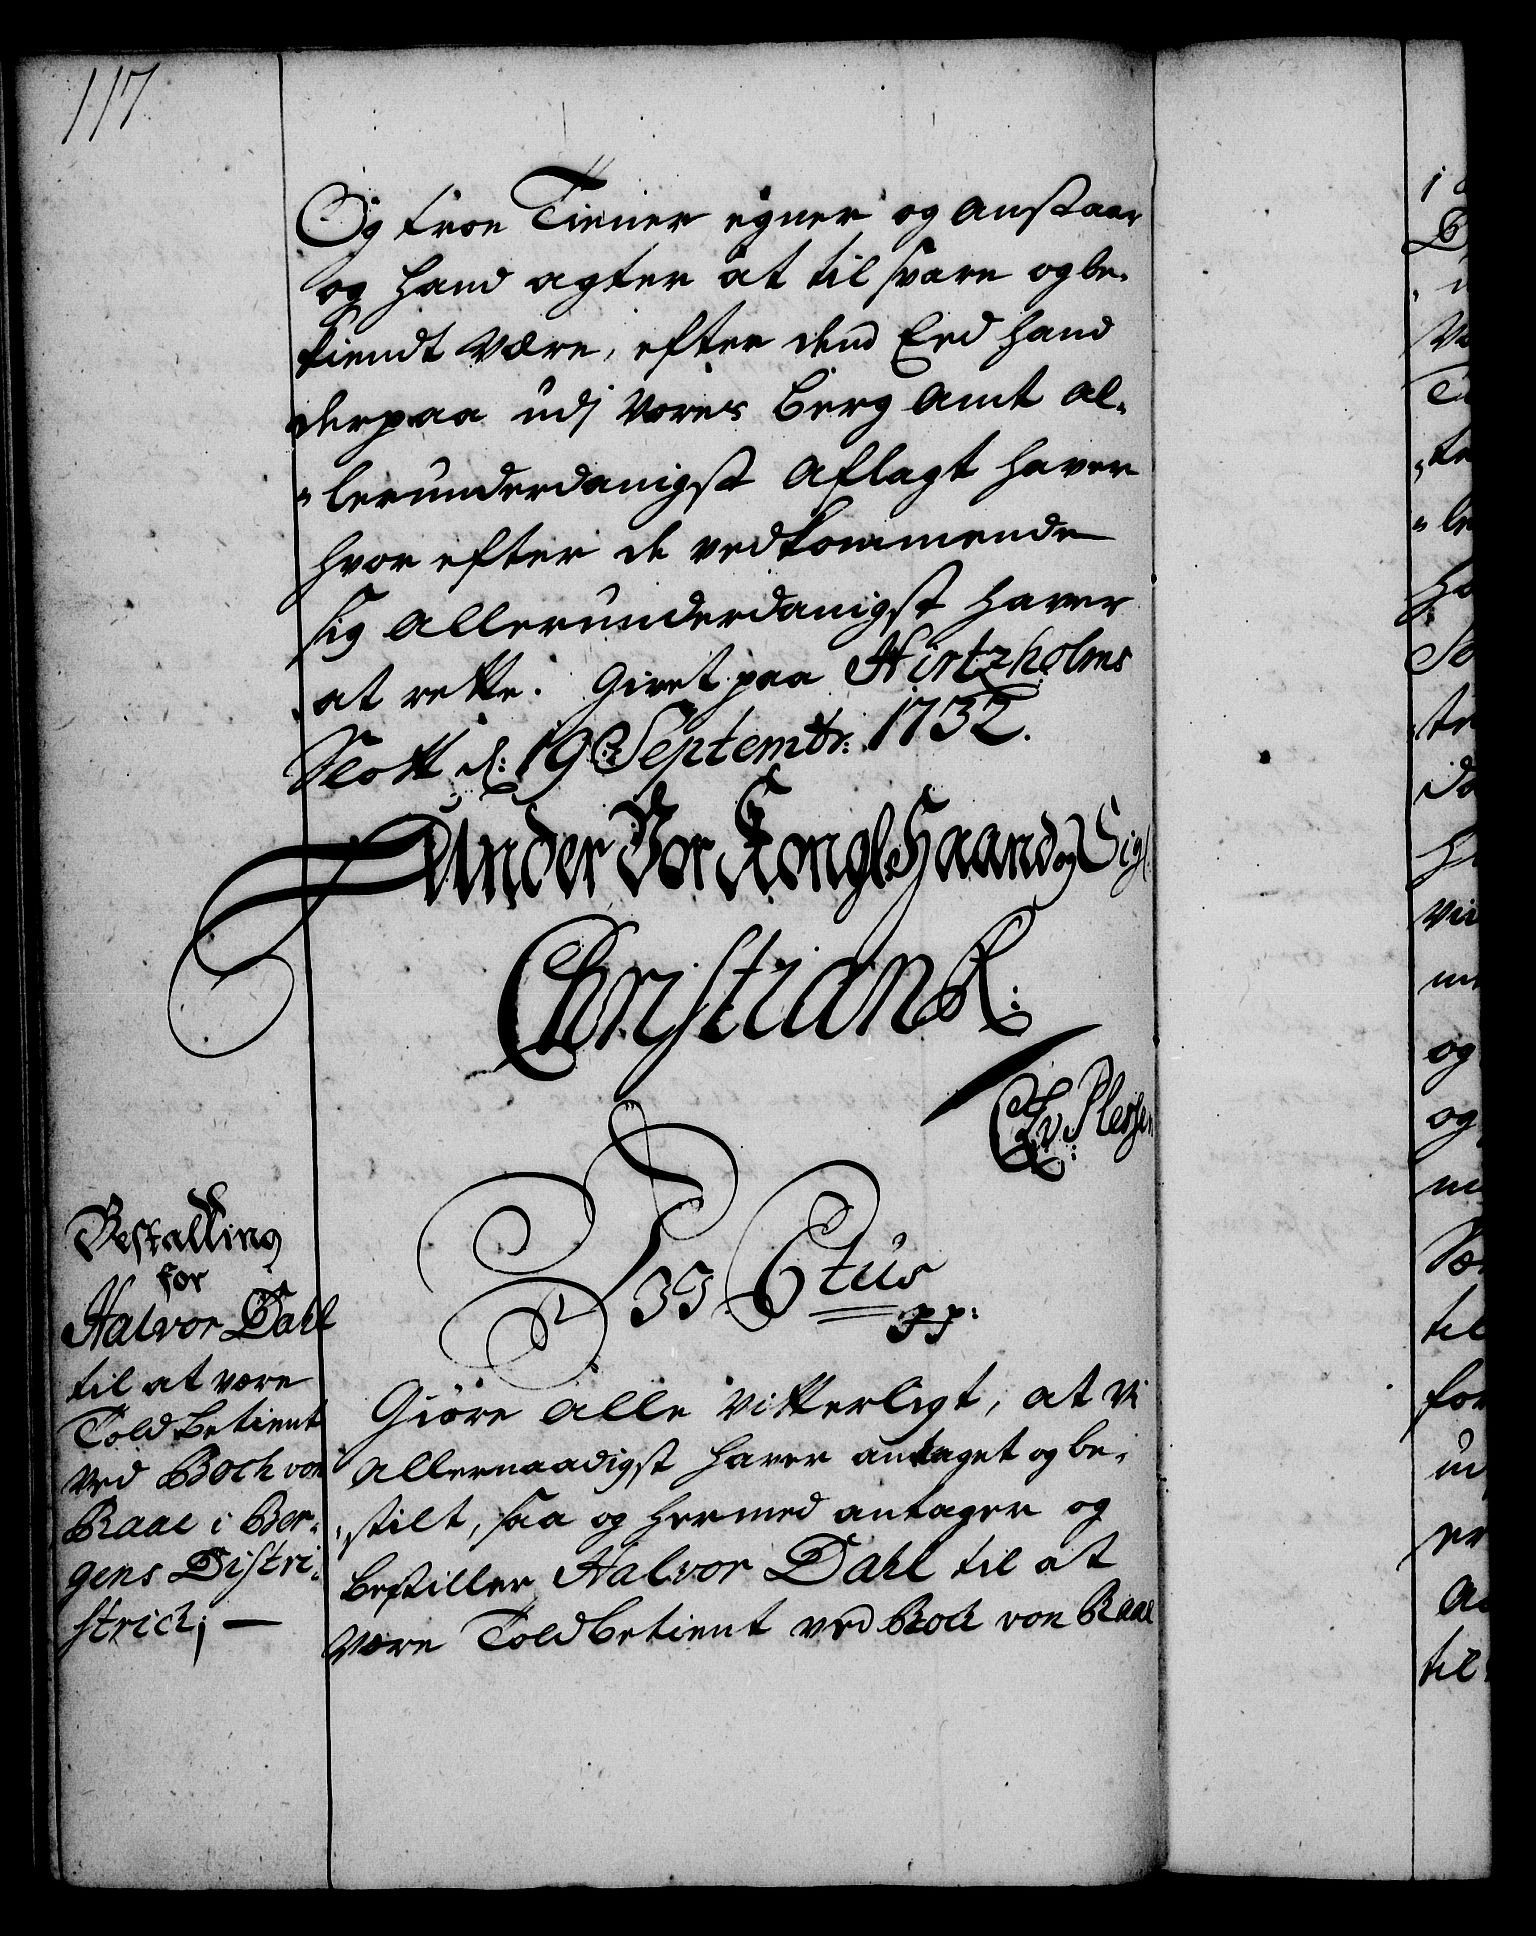 117
Og troe Tiener egner og anstaar
og hand agter at til svare og be-
kiendt være, efter dend Eed hand
derpaa udj Vores Berg Amt al-
"lerunderdanigst aflagt haver
hvor efter de vedkommende
sig allerunderdanigst haver
at rette. Givet paa Hirtzholms
Slott d: 19 Septembr: 1732.
Under Vor Kongl. Haand og Sigl.
Christian R:
C A v: Plessen
Bestalling
for
Halvor Dahl
til at være
Told betient
ved Boch von
Raae i Ber-
gens Distri-
strict; —
Ctus
pp:
Giöre alle vitterligt, at vi
allernaadigst haver antaget og be-
"stilt, saa og hermed antager og
bestiller Halvor Dahl til at
være Toldbetient ved Bock von Raae